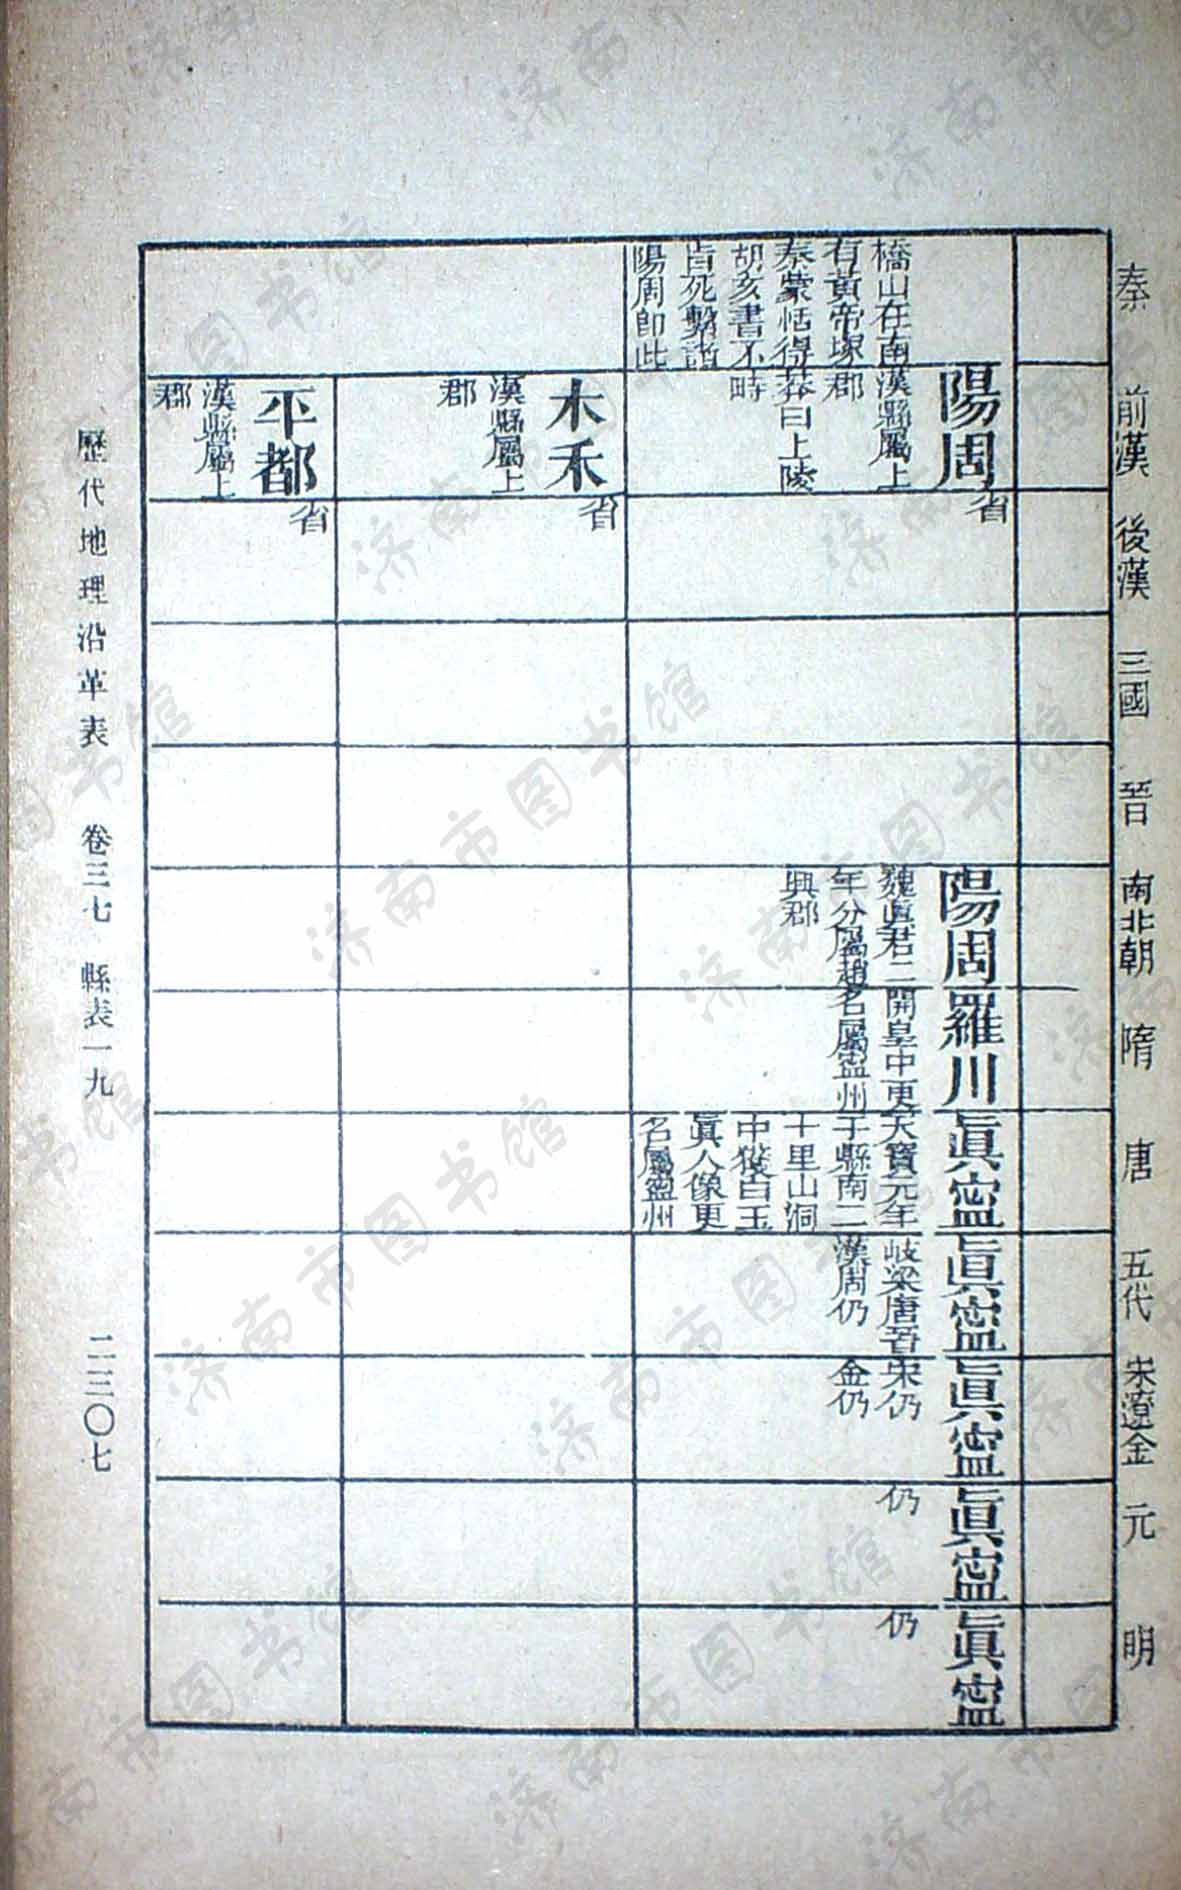 秦
前漢
後漢
三國
晉
南北朝
隋
唐
五代
宋遼金
元
明
橋山在南
有黃帝塚
秦蒙恬得
胡亥書不
肯死繫諸
陽周卽此
陽周
漢縣屬上
郡
莽曰上陵
畤
省
陽周
魏眞君二
年分屬趙
興郡
羅川
開皇中更
名屬寍州
眞寍
天寶元年
于縣南二
十里山洞
中獲白玉
眞人像更
名屬寍州
眞寍
岐梁唐晉
漢周仍
眞寍
宋仍
金仍
眞寍
仍
眞寍
仍
木禾
漢縣屬上
郡
省
平都
漢縣屬上
郡
省
歷代地理沿革表 卷三七 縣表一九 二三〇七
济南市图书馆